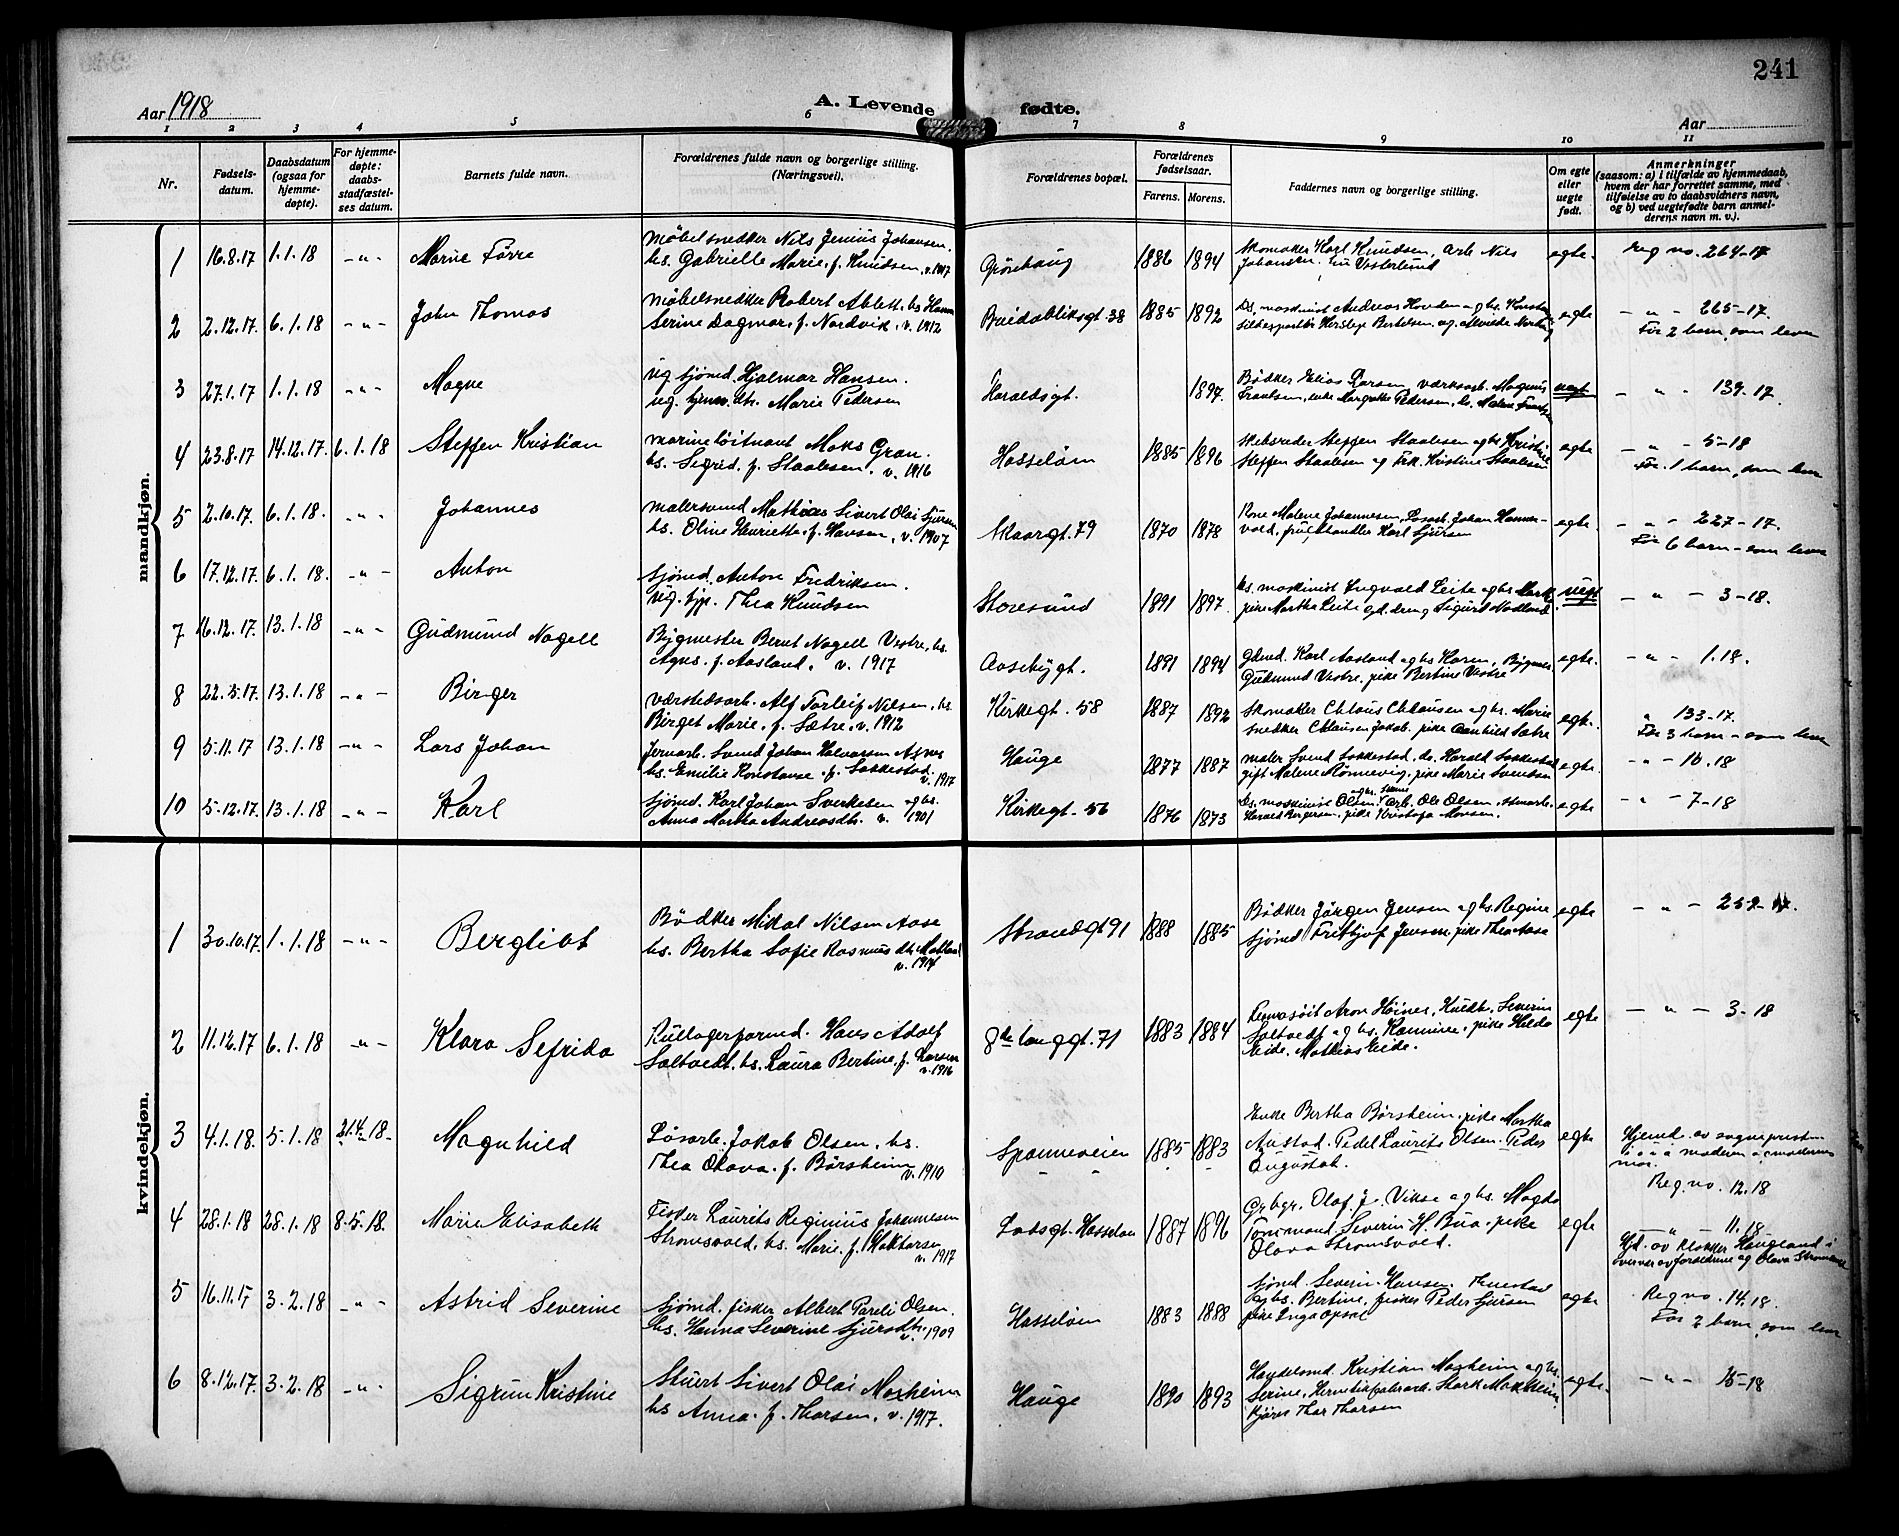 241
Aar 1918
A. Levende fødte.
Aar
1 2 3 4 5 6 7 8 9 10 11
Nr.
Fødsels-
datum.
Daabsdatum
(ogsaa for
hjemme-
døpte).
For hjemme-
døpte:
daabs-
stadfæstel-
ses datum.
Barnets fulde navn.
Forældrenes fulde navn og borgerlige stilling.
(Næringsvei).
Forældrenes bopæl.
Forældrenes
fødselsaar.
Farens. Morens.
Faddernes navn og borgerlige stilling.
Om egte
eller
uegte
født.
Anmerkninger
(saasom: a) i tilfælde av hjemmedaab,
hvem der har forrettet samme, med
tilføielse av to daabsvidners navn,
og b) ved uegtefødte barn anmel-
derens navn m. v.).
mandkjøn.
1 16.8.17 1.1.18 -"- Marie Førre
Møbelsnedker Nils Jenius Johansen,
hs. Gabrielle Marie, f. Knudsen, v. 1917
Grönhaug 1886 1894
Skomaker Karl Knudsen, Arb. Nils
Johansen
egte. Reg no. 264-17
2 2.12.17. 6.1.18 -"- John Thomas
Møbelsnedker Robert Ablett, hs Hanna
Serine Dagmar, f. Nordvik, v. 1912
Breidabliksgt. 38 1885 1892
egte -"- 265-17.
Før 2 barn, som lever
3 27.1.17 1.1.18 -"- Magne
ug sjömd. Hjalmar Hansen.
ug. Marie Pedersen
Haraldsgt. 1897.
Bødker Elias Larsen, værksarb. Magnus
uegt -"- 139-17.
4 23.8.17 14.12.17. 6.1.18 Steffen Kristian
Marineløitnant Maks Gran.
hs. Sigrid, f. Staalesen, v. 1916
Hasseløen 1885 1896
Skibsreder Steffen Staalesen og hs Kristine
Steffen Staalesen og frk. Kristine Staalesen
egte -"- 5-18
Før 1 barn, som lever
5 2.10.17. 6.1.18. -"- Johannes
Malersvend Mathias Sivert Olai Sjursen
hs. Oline Henriette, f. Hansen, v. 1907
Skaargt. 79 1870 1878
Kone Malene Johannesen, Losarb. Johan Hammer-
vold, frukthandler Karl Sjursen
egte. -"- 227-17.
Før 6 barn - som lever
6 17.12.17. 6.1.18. -"- Anton
Sjömd. Anton Fredriksen.
ug. Thea Knudsen
Storesund 1891 1897.
Ds. maskinist Ingvald Leite og hs
pike Martha Leite gd. dreng Sigurd
uegt -"- 3-18.
7 16.12.17. 13.1.18 -"- Gudmund Nagell
Bygmester Bernt Nagell Vestre, hs.
Agnes. f. Aasland. v. 1917
Aasebygt. 1891 1894
Gdmd. Karl Aasland og hs Karen,
Gudmund Vestre, pike Bertine Vestre
egte. -"- 1.18.
8 22.3.17. 13.1.18 -"- Birger
Værstedsarb. Alf Torleif Nilsen, hs.
Birget Marie, f. Sætre, v. 1912
Kirkegt. 58 1887 1892
Skomaker Claus Clausen og hs. Marie
snedker Clausen Jakob. pike Sætre
egte. " 133-17.
Før 3 barn - som lever
9 5.11.17 13.1.18 -"- Lars Johan
Jernarb. Svend Johan
hs. Emilie Konstanse, f. Sokkestad. v. 1917
Hauge 1877 1887
Maler Svend Sokkestad, do. Harald Sokkestad
gift Malene Rönnevig, pike Marie Svendsen
egte. -"- 10.18
10 5.12.17. 13.1.18 -"- Karl
Sjömd. Karl Johan Sverkesen og hs.
Anna Martha Andreasdtr. v. 1901
Kirkegt. 56 1876 1873
Ds. maskinist Olsen, Arb. Ole Olsen,
Harald Bergersen, pike Kristofa Monsen.
egte -"- 7-18
kvindekjøn.
1 30.10.17. 1.1.18 -"- Bergliot
Bødker Mikal Nilsen Aase
hs. Bertha Sofie Rasmusdtr.
v. 1914
Strandgt 91 1888 1885
Bødker Jörgen Jensen og hs. Regine
Sjömd Fritjof Jensen, pike Thea Aase
egte -"- 252-17.
2 11.12.17 6.1.18 -"- Klara Sefrida
Kullagerformd. Hans Adolf
Saltvedt, hs. Laura Bertine, f. Larsen
v. 1916
8de langgt. 71 1883 1884
Aron Höines, Severin
Saltvedt og hs. pike Hilda
Eide, Mathias Eide.
egte -"- 3-18
3 4.1.18. 5.1.18 21.4.18. Magnhild
Løsarb. Jakob Olsen, hs.
Thea Olava. f. Børsheim v. 1910
Spanneveien 1885 1883
Enke Bertha Børsheim, pike Martha
Austad. Peder Laurits Olsen. Peder
egte Hjemd. av sogneprest
moderen
mor.
Reg. no. 12.18
4 28.1.18 28.1.18 8.5.18. Marie Elisabeth
Fisker Laurits Reginius Johannesen
Stromsvold, hs. Marie. f.
v. 1917
Hasseløen 1887 1896
Olaf J. Vikse og hs. Magda
Severin H. Bua. pike
Olava Stromsvold.
egte " 11.18
Hjd. av Klokker Haugland i
overvær av forældrene og Olava Stromsvold
5 16.11.17 3.2.18 -"- Astrid Severine
Sjömd. fisker Albert Pareli Olsen.
hs. Hanna Severine Sjursdtr.
v. 1909
Hasseløen 1883 1888
Sjömd. Severin Hansen.
og hs. Bertine, fisker Peder Sjursen
pike Inga Opsal
egte Reg no. 14.18.
Før 2 barn, som lever
6 8.12.17. 3.2.18 -"- Sigrun Kristine
Stuert Sivert Olai
hs Anna. f. Thorsen, v. 1917.
Hauge 1890 1893
Kristian og hs.
Serine,
Thor Thorsen
egte. -"- 15-18